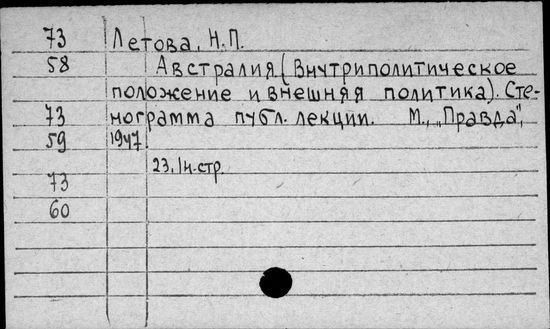 73 Летова, Н.П.
58 Австралия (Внутриполитическое
положение и внешняя политика). Сте-
73 нограмма публ. лекции. М., „Правда",
59 1947.
73 23, 1н. стр.
60